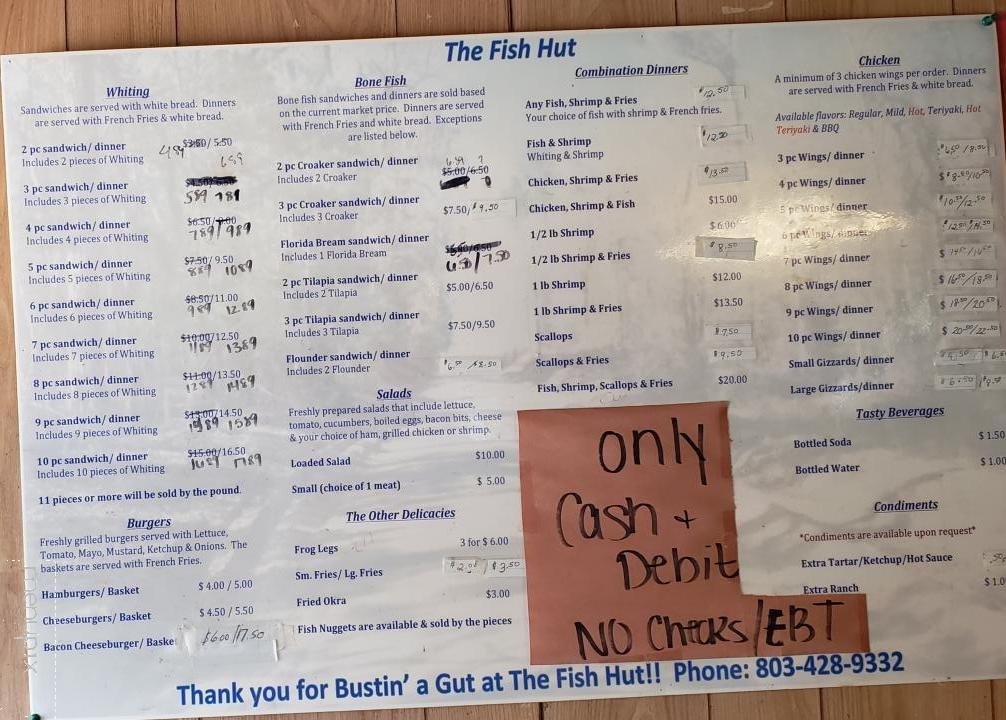 The Fish Hut
Whiting
Sandwiches are served with white bread. Dinners
are served with French Fries & white bread.
2 pc sandwich/ dinner $3.50/ 5.50
Includes 2 pieces of Whiting 489 689
3 pc sandwich/ dinner $4.50/6.50
Includes 3 pieces of Whiting 589 789
4 pc sandwich/ dinner $6.50/ 9.00
Includes 4 pieces of Whiting 789/989
5 pc sandwich/ dinner $7.50/ 9.50
Includes 5 pieces of Whiting 889 1089
6 pc sandwich/ dinner $8.50/11.00
Includes 6 pieces of Whiting 989 1289
7 pc sandwich/ dinner $10.00/12.50
Includes 7 pieces of Whiting 1189 1389
8 pc sandwich/ dinner $11.00/13.50
Includes 8 pieces of Whiting 1289 1489
9 pc sandwich/ dinner $13.00/14.50
Includes 9 pieces of Whiting 1589
10 pc sandwich/ dinner $15.00/16.50
Includes 10 pieces of Whiting 1689 1789
11 pieces or more will be sold by the pound.
Burgers
Freshly grilled burgers served with Lettuce,
Tomato, Mayo, Mustard, Ketchup & Onions. The
baskets are served with French Fries.
Hamburgers/ Basket $ 4.00 / 5.00
Cheeseburgers/ Basket $ 4.50 / 5.50
Bacon Cheeseburger/ Basket $6.00/17.50
Bone Fish
Bone fish sandwiches and dinners are sold based
on the current market price. Dinners are served
with French Fries and white bread. Exceptions
are listed below.
2 pc Croaker sandwich/ dinner $5.00/6.50
Includes 2 Croaker
3 pc Croaker sandwich/ dinner $7.50/ $9.50
Includes 3 Croaker
Florida Bream sandwich/ dinner
Includes 1 Florida Bream 6.50/7.50
2 pc Tilapia sandwich/ dinner $5.00/6.50
Includes 2 Tilapia
3 pc Tilapia sandwich/ dinner $7.50/9.50
Includes 3 Tilapia
Flounder sandwich/ dinner $6.50 / $8.50
Includes 2 Flounder
Salads
Freshly prepared salads that include lettuce,
tomato, cucumbers, boiled eggs, bacon bits, cheese
& your choice of ham, grilled chicken or shrimp.
Loaded Salad $10.00
Small (choice of 1 meat) $ 5.00
The Other Delicacies
Frog Legs 3 for $ 6.00
Sm. Fries/ Lg. Fries $2.00 / $3.50
Fried Okra $3.00
Fish Nuggets are available & sold by the pieces
Combination Dinners
Any Fish, Shrimp & Fries $12.50
Your choice of fish with shrimp & French fries.
Fish & Shrimp $12.50
Whiting & Shrimp
Chicken, Shrimp & Fries $13.50
Chicken, Shrimp & Fish $15.00
1/2 lb Shrimp $6.00
1/2 lb Shrimp & Fries $8.50
1 lb Shrimp $12.00
1 lb Shrimp & Fries $13.50
Scallops $7.50
Scallops & Fries $9.50
Fish, Shrimp, Scallops & Fries $20.00
only
Cash +
Debit
NO Checks/EBT
Chicken
A minimum of 3 chicken wings per order. Dinners
are served with French Fries & white bread.
Available flavors: Regular, Mild, Hot, Teriyaki, Hot
Teriyaki & BBQ
3 pc Wings/ dinner $6.50 / 8.50
4 pc Wings/ dinner $8.50/10.50
5 pc Wings/ dinner $10.50/12.50
6 pc Wings/ dinner $12.50/$14.50
7 pc Wings/ dinner
8 pc Wings/ dinner $16.50/18.50
9 pc Wings/ dinner $18.50/20.50
10 pc Wings/ dinner $20.50/22.50
Small Gizzards/ dinner
Large Gizzards/dinner $6.50/$8.50
Tasty Beverages
Bottled Soda $ 1.50
Bottled Water $ 1.00
Condiments
*Condiments are available upon request*
Extra Tartar/Ketchup/Hot Sauce .50
Extra Ranch
Thank you for Bustin' a Gut at The Fish Hut!! Phone: 803-428-9332
menupix